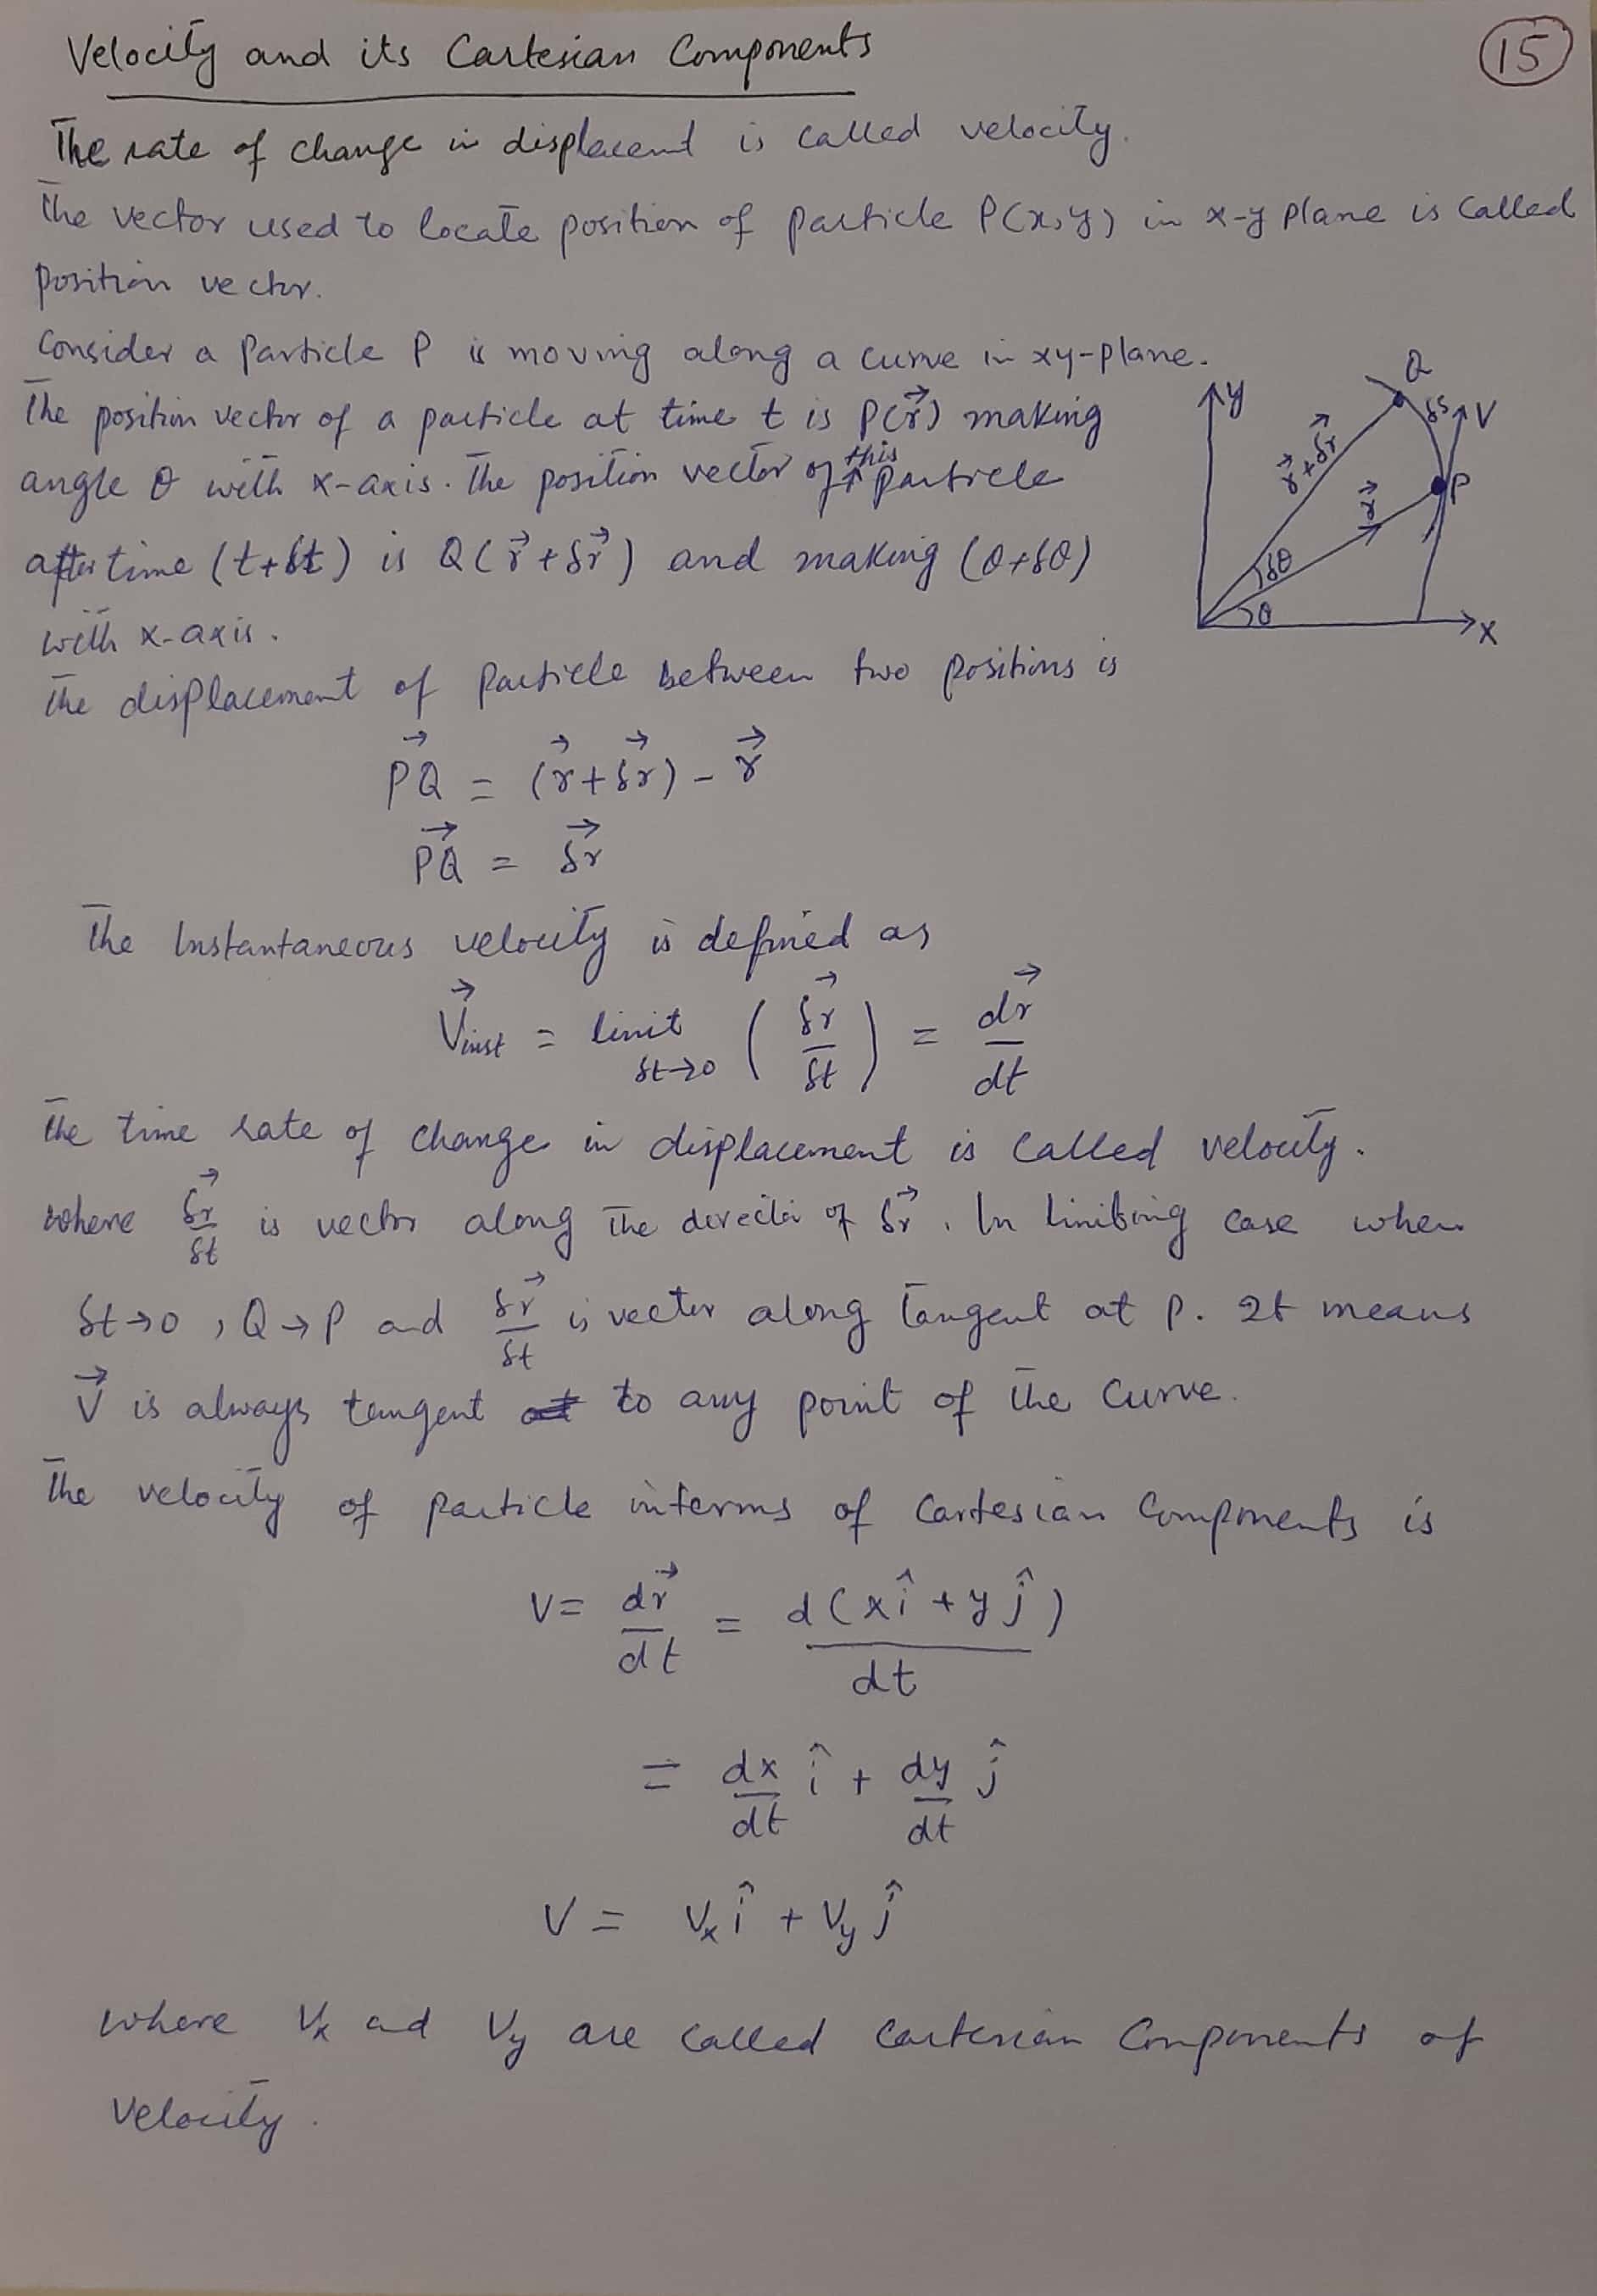 Velocity and its Cartesian Components
15
The rate of change in displacemt is called velocity.
The vector used to locate position of particle P(x,y) in x-y plane is called
position vector.
Consider a particle P is moving along a curve in xy-plane.
The position vector of a particle at time t is P(r⃗) making
angle θ with x-axis. The position vector of this particle
after time (t+δt) is Q(r⃗+δr⃗) and making (θ+δθ)
with x-axis.
y
Q
δs
V
r⃗+δr⃗
r⃗
P
δθ
θ
x
The displacement of particle between two positions is
PQ⃗ = (r⃗+δr⃗) - r⃗
PQ⃗ = δr⃗
The Instantaneous velocity is defined as
V⃗inst = limit δt→0 (δr⃗/δt) = dr⃗/dt
The time rate of change in displacement is called velocity.
where δr⃗/δt is vector along the direction of δr⃗. In limiting case when
δt→0, Q→P and δr⃗/δt is vector along tangent at P. It means
V⃗ is always tangent to any point of the curve.
The velocity of particle interms of Cartesian Components is
V = dr⃗/dt = d(xî + yĵ)/dt
= dx/dt î + dy/dt ĵ
V = Vxî + Vyĵ
where Vx and Vy are called Cartesian Components of
Velocity.